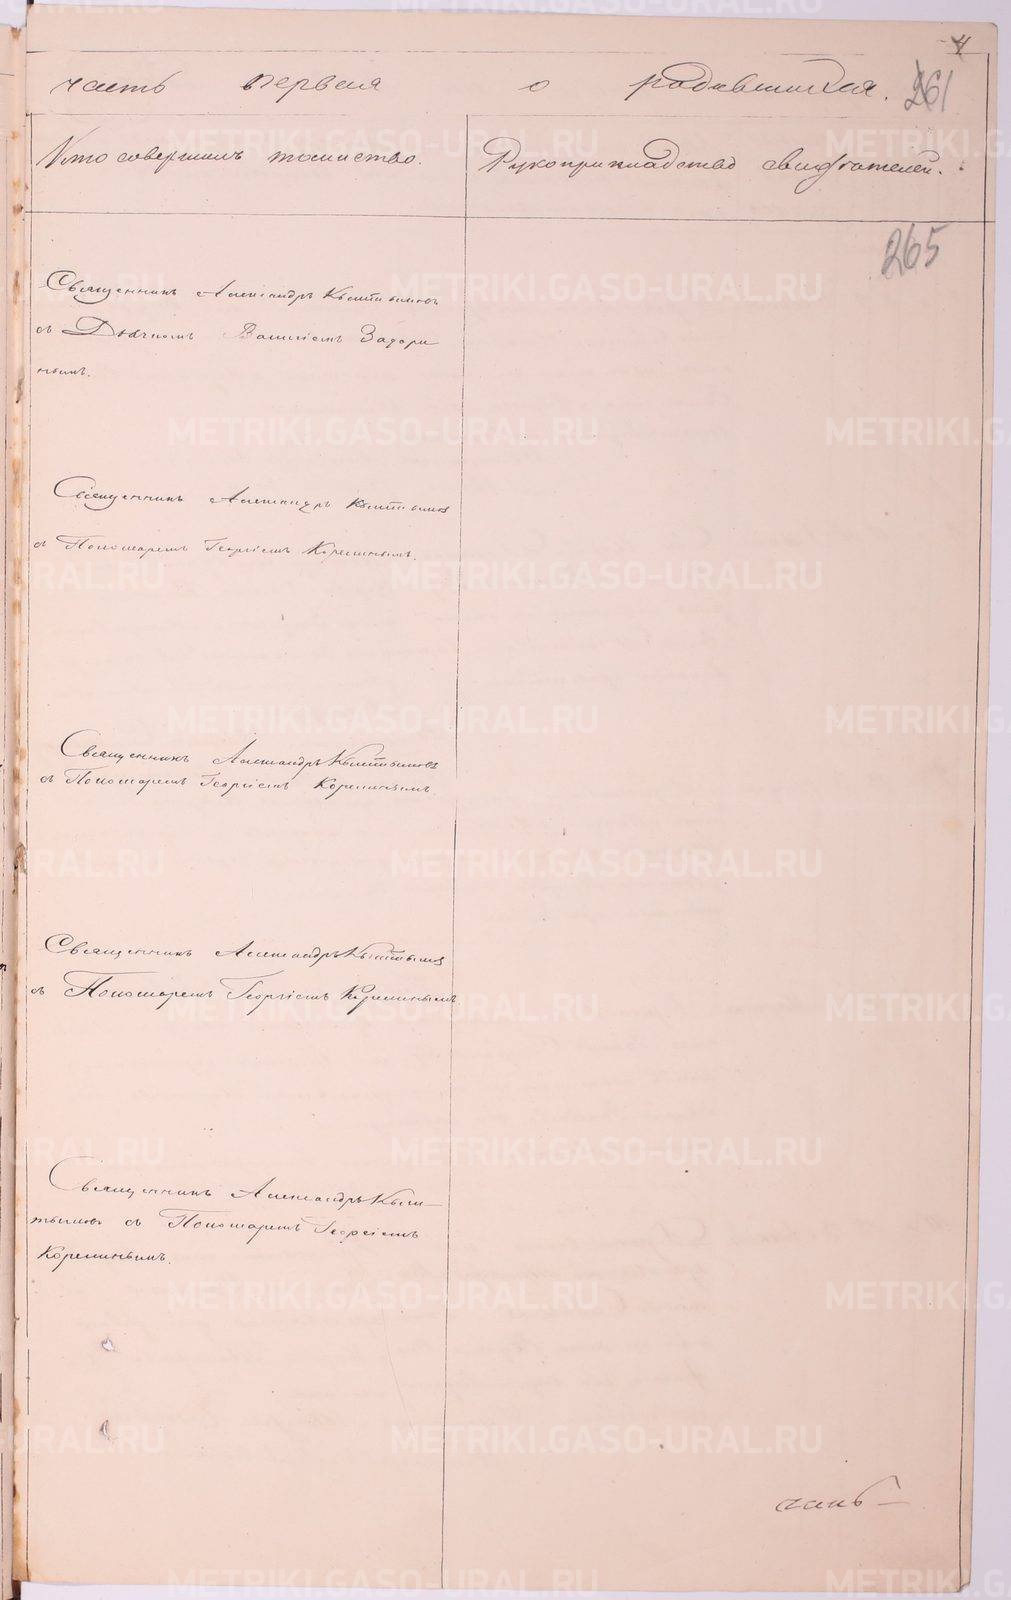 4
часть первая о родившихся. 261
Кто совершалъ таинство. Рукоприкладство свидѣтелей.
265
Священникъ Александръ Кыштымовъ
съ Дьячкомъ Василіемъ Задори
нымъ.
Священникъ Александръ Кыштымов
съ Пономаремъ Георгіемъ Корелинымъ.
Священникъ Александръ Кыштымовъ
съ Пономаремъ Георгіемъ Корелинымъ.
Священникъ Александръ Кыштымов
съ Пономаремъ Георгіемъ Корелинымъ
Священникъ Александръ Кыш-
тымовъ съ Пономаремъ Георгіемъ
Корелинымъ.
METRIKI.GASO-URAL.RU